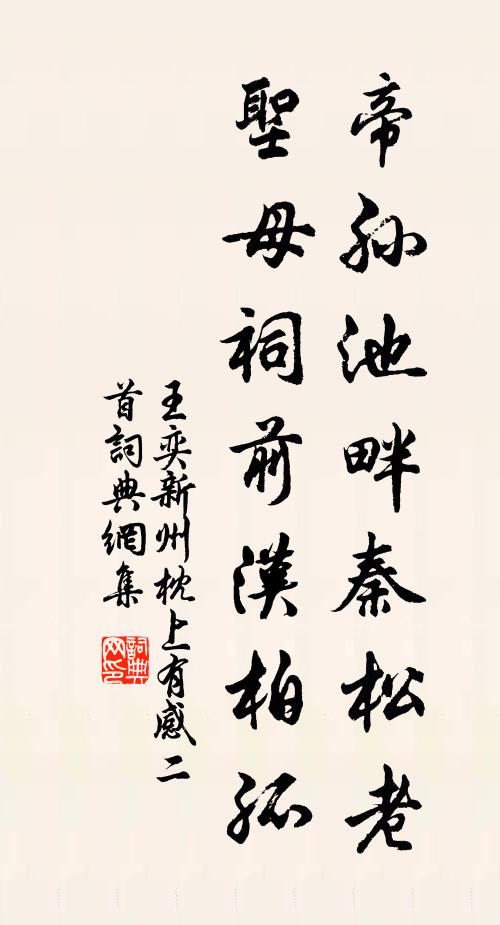 帝孫池畔秦松老
聖母祠前漢柏孤
王奕新州枕上有感二
首詞典網集
詞典網印